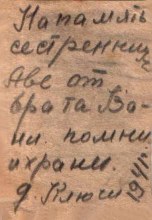 На память
сестренки
Аве от
брата Ва-
ни. помни
и храни.
д. Ключи 1941г.